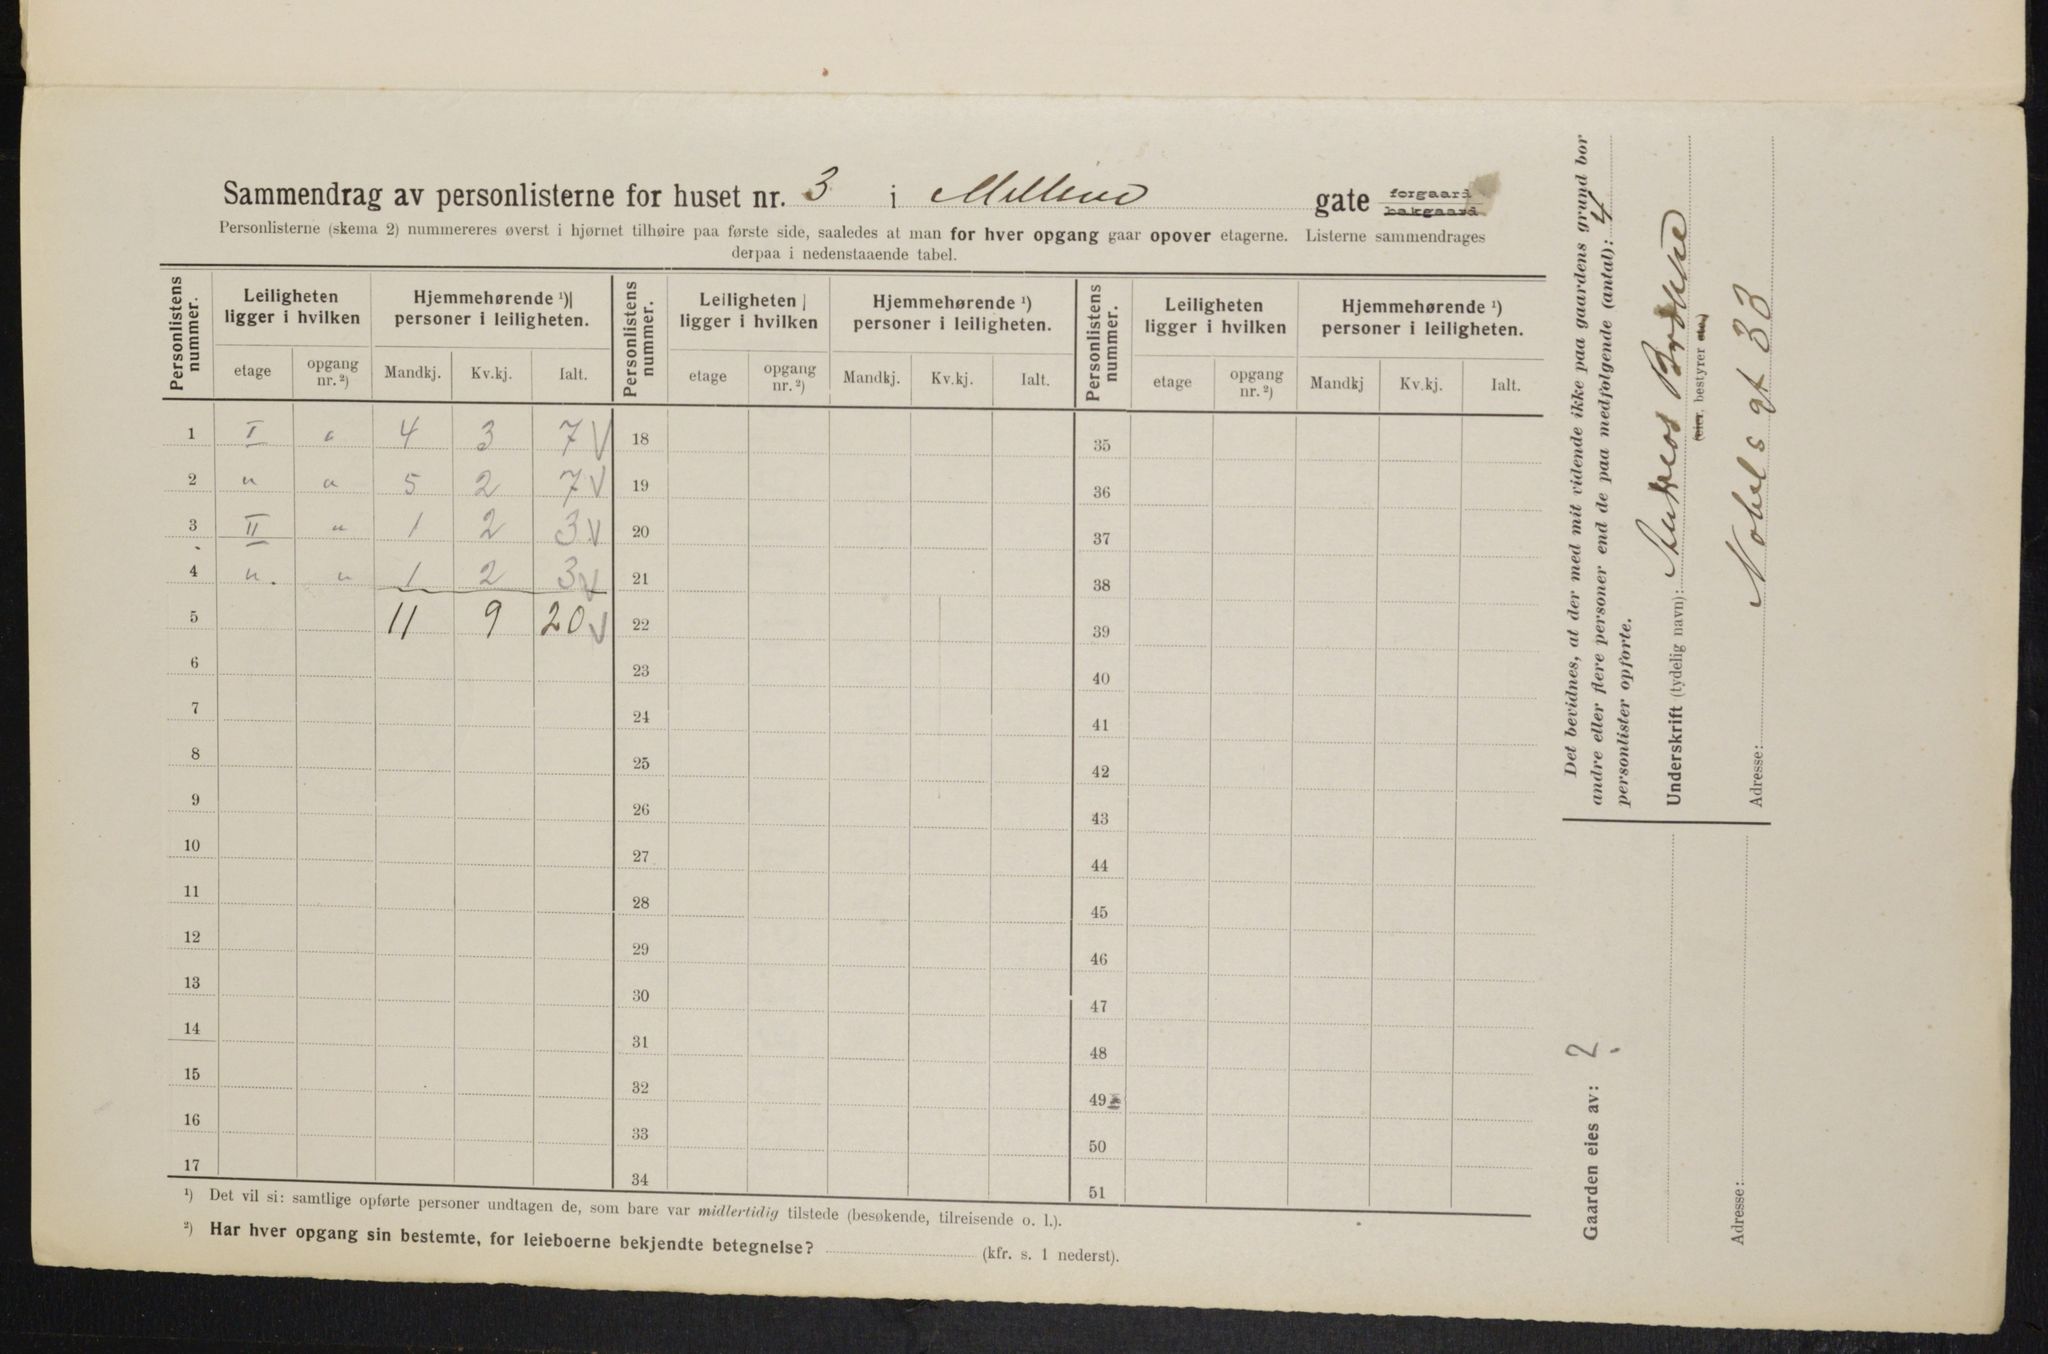 Sammendrag av personlisterne for huset nr. 3 i gate forgaard bakgaard
Personlisterne (skema 2) nummereres øverst i hjørnet tilhøire paa første side, saaledes at man for hver opgang gaar opover etagerne. Listerne sammendrages
derpaa i nedenstaaende tabel.
Personlistens nummer. Leiligheten ligger i hvilken Hjemmehørende ¹) personer i leiligheten. Personlistens nummer. Leiligheten ligger i hvilken Hjemmehørende ¹) personer i leiligheten. Personlistens nummer. Leiligheten ligger i hvilken Hjemmehørende ¹) personer i leiligheten.
etage opgang nr. ²) Mandkj. Kv.kj. Ialt. etage opgang nr. ²) Mandkj. Kv.kj. Ialt. etage opgang nr. ²) Mandkj Kv.kj. Ialt.
1 I 4 3 7 18 35
2 " " 5 2 7 19 36
3 II " 1 2 3 20 37
4 " " 1 2 3 21 38
5 11 9 20 22 39
6 23 40
7 24 41
8 25 42
9 26 43
10 27 44
11 28 45
12 29 46
13 30 47
14 31 48
15 32 49
16 33 50
17 34 51
¹) Det vil si: samtlige opførte personer undtagen de, som bare var midlertidig tilstede (besøkende, tilreisende o. l.).
²) Har hver opgang sin bestemte, for leieboerne bekjendte betegnelse? (kfr. s. 1 nederst).
Det bevidnes, at der med mit vidende ikke paa gaardens grund bor
andre eller flere personer end de paa medfølgende (antal): 4
personlister opførte.
Underskrift (tydelig navn):
(eier, bestyrer etc.)
Adresse: Nobels gt 33
Gaarden eies av: ?
Adresse: